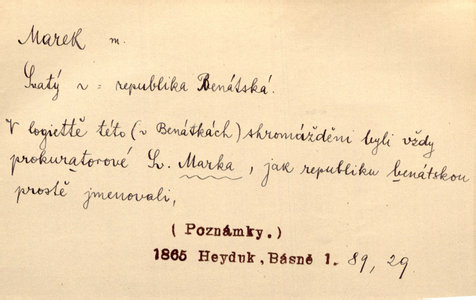 Marek m.
Svatý ~ = republika Benátská.
V logiettě této (v Benátkách) shromážděni byli vždy
prokuratorové Sv. Marka, jak republiku benátskou
prostě jmenovali,
(Poznámky.)
1865 Heyduk, Básně 1. 89, 29.